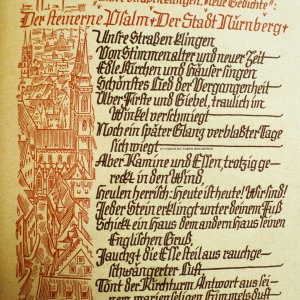 Neue Gedichte":
Der steinerne Psalm + Der Stadt Nürnberg +
Unsre Straßen klingen
Von Stimmen alter und neuer Zeit
Die Kirchen und Häuser singen
Schönstes Lied der Vergangenheit
Über Firste und Giebel, traulich im
Winkel verschmiegt
Noch ein später Glanz verblaßter Tage
sich wiegt
Aber Kamine und Essen, trotzig ge-
reckt in den Wind,
Heulen herrisch: Heute ist heute! Wir sind!
Jeder Stein erklingt unter deinem Fuß
Schickt ein Haus dem andern Haus seinen
Englischen Gruß,
Jauchzt die Esse steil aus rauch-
geschwängerter Luft
Tönt der Kirchturm Antwort aus sei-
nem marienseligen Himmelsduft